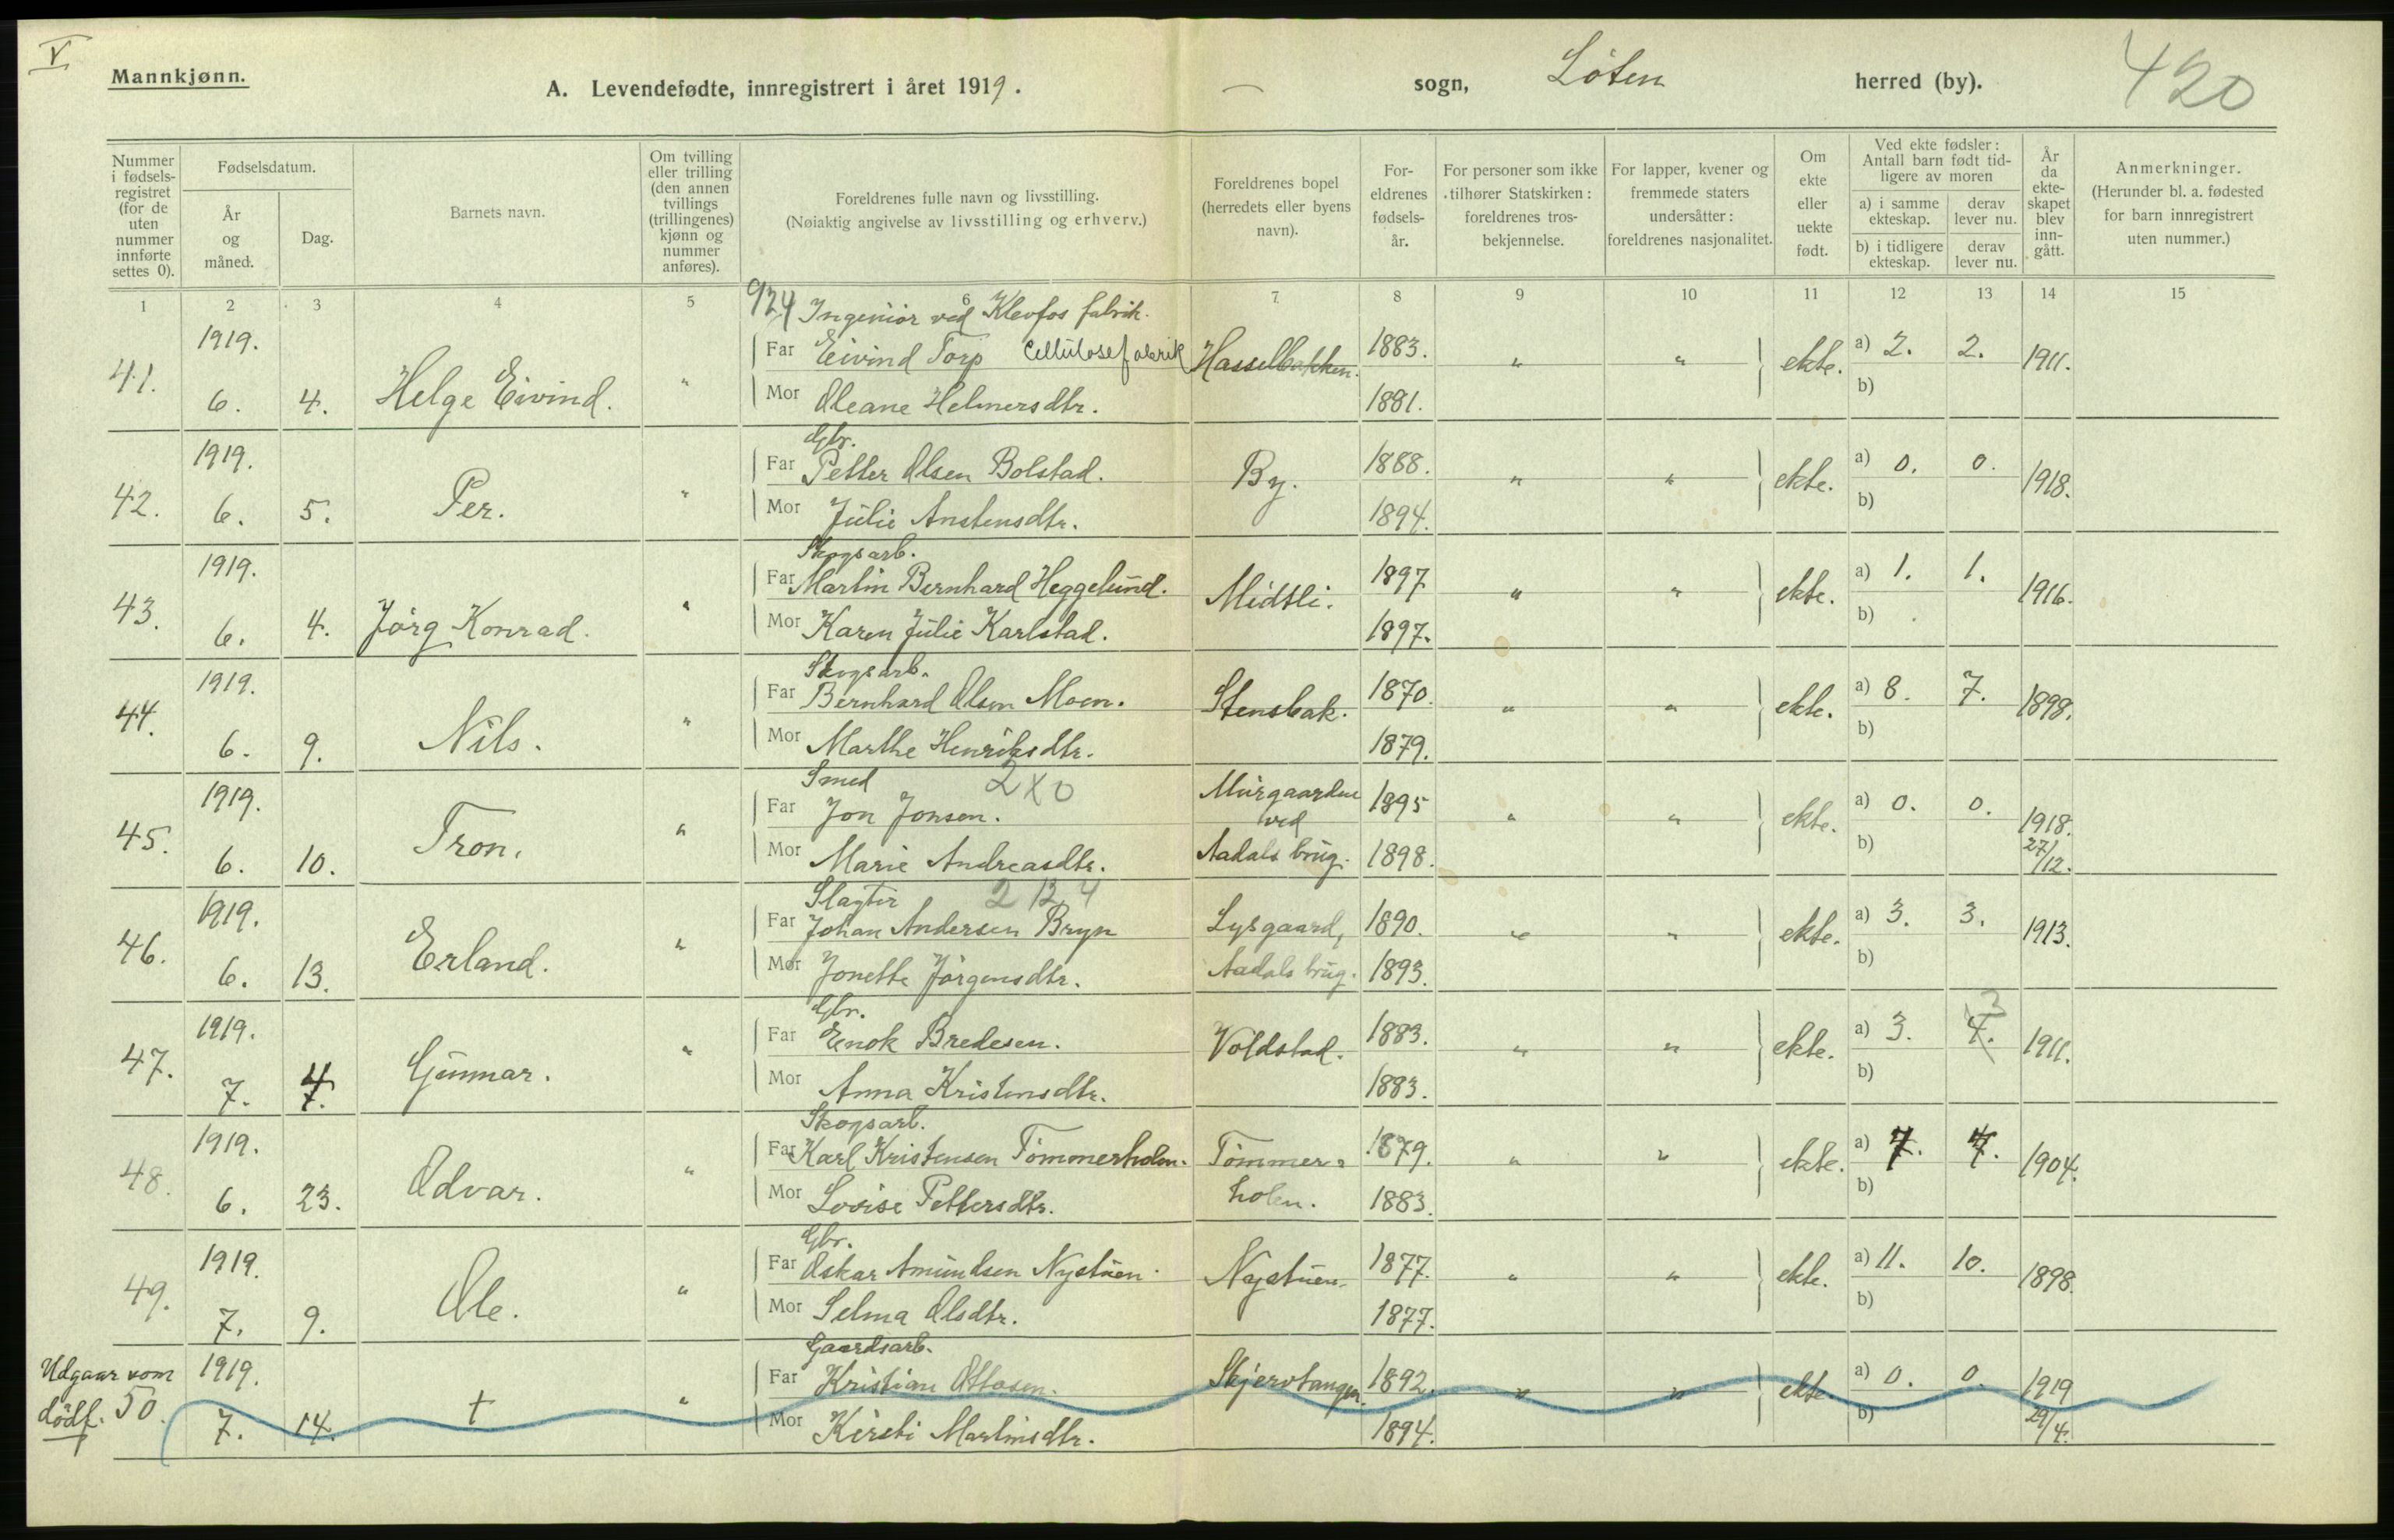 V.
Mannkjønn.
A. Levendefødte, innregistrert i året 1919.
— sogn, Löten herred (by).
420
Nummer i fødsels-registret (for de uten nummer innførte settes 0).
Fødselsdatum.
År og måned.
Dag.
Barnets navn.
Om tvilling eller trilling (den annen tvillings (trillingenes) kjønn og nummer anføres).
Foreldrenes fulle navn og livsstilling.
(Nøiaktig angivelse av livsstilling og erhverv.)
Foreldrenes bopel (herredets eller byens navn).
For-eldrenes fødsels-år.
For personer som ikke tilhører Statskirken: foreldrenes tros-bekjennelse.
For lapper, kvener og fremmede staters undersåtter: foreldrenes nasjonalitet.
Om ekte eller uekte født.
Ved ekte fødsler: Antall barn født tid-ligere av moren
a) i samme ekteskap.
derav lever nu.
b) i tidligere ekteskap.
derav lever nu.
År da ekte-skapet blev inn-gått.
Anmerkninger.
(Herunder bl. a. fødested for barn innregistrert uten nummer.)
1 2 3 4 5 6 7 8 9 10 11 12 13 14 15
924 Ingeniör ved Klevfos fabrik.
1919. Far Eivind Torp Cellulosefabrik Hasselbakken. 1883. " " ekte. a) 2. 2. 1911.
41. 6. 4. Helge Eivind. " Mor Oleane Helmersdtr. 1881. b)
Gbr.
1919. Far Petter Olsen Bolstad. By. 1888. " " ekte. a) 0. 0. 1918.
42. 6. 5. Per. " Mor Julie Anstensdtr. 1894. b)
Skogsarb.
1919. Far Martin Bernhard Heggelund. Midtli. 1897 " " ekte. a) 1. 1. 1916.
43. 6. 4. Jörg Konrad. " Mor Karen Julie Karlstad. 1897. b)
Skogsarb.
1919. Far Bernhard Olsen Moen. Stensbak. 1870. " " ekte. a) 8. 7. 1898.
44. 6. 9. Nils. " Mor Marthe Henriksdtr. 1879. b)
Smed 2 x 0
1919. Far Jon Jonsen. Murgaarden ved 1895 " " ekte. a) 0. 0. 1918.
45. 6. 10. Tron. " Mor Marie Andreasdtr. Aadals brug. 1898. b) 27/12.
Slagter 2 12 4
1919. Far Johan Andersen Bryn Lysgaard, 1890. " " ekte. a) 3. 3. 1913.
46. 6. 13. Erland. " Mor Jonette Jörgensdtr. Aadals brug. 1893. b)
Gbr. 3
1919. Far Enok Bredesen. Voldstad. 1883. " " ekte. a) 3. 4. 1911.
47. 7. 4. Gunnar. " Mor Anna Kristensdtr. 1883. b)
Skogsarb.
1919. Far Karl Kristensen Tömmerholen. Tömmer- 1879. " " ekte. a) 7. 7. 1904.
48. 6. 23. Odvar. " Mor Lovise Pettersdtr. holen. 1883. b)
Gbr.
1919. Far Oskar Amundsen Nystuen. Nystuen. 1877. " " ekte. a) 11. 10. 1898.
49. 7. 9. Ole. " Mor Selma Olsdtr. 1877. b)
Gaardsarb.
Udgaar som 1919. Far Kristian Ottosen. Skjervtangen. 1892. " " ekte. a) 0. 0. 1919
dödf. 50. 7. 14. † " Mor Kirsti Martinsdtr. 1894. b) 29/4.